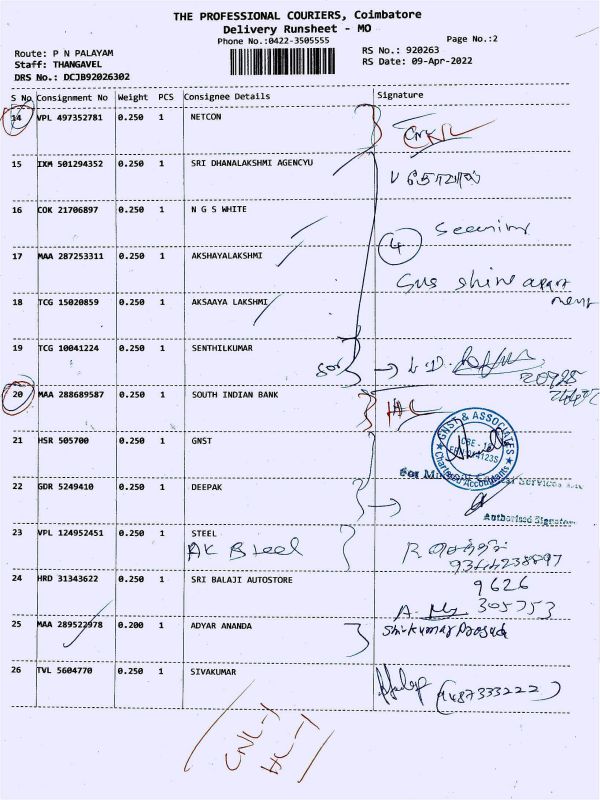 THE PROFESSIONAL COURIERS, Coimbatore
Delivery Runsheet - MO
Phone No.:0422-3505555
Page No.:2
Route: P N PALAYAM
RS No.: 920263
Staff: THANGAVEL
RS Date: 09-Apr-2022
DRS No.: DCJB92026302
S No Consignment No Weight PCS Consignee Details Signature
14 VPL 497352781 0.250 1 NETCON
15 IXM 501294352 0.250 1 SRI DHANALAKSHMI AGENCYU
16 COK 21706897 0.250 1 N G S WHITE
4
17 MAA 287253311 0.250 1 AKSHAYALAKSHMI
shine apartment
18 TCG 15020859 0.250 1 AKSAAYA LAKSHMI
19 TCG 10041224 0.250 1 SENTHILKUMAR
20 MAA 288689587 0.250 1 SOUTH INDIAN BANK
GNST & ASSOCIATES
Chartered Accountants
21 HSR 505700 0.250 1 GNST
22 GDR 5249410 0.250 1 DEEPAK
Authorised
23 VPL 124952451 0.250 1 STEEL
AK Steel
24 HRD 31343622 0.250 1 SRI BALAJI AUTOSTORE
9626
305753
25 MAA 289522978 0.200 1 ADYAR ANANDA
26 TVL 5604770 0.250 1 SIVAKUMAR
CNL-1
HL-1